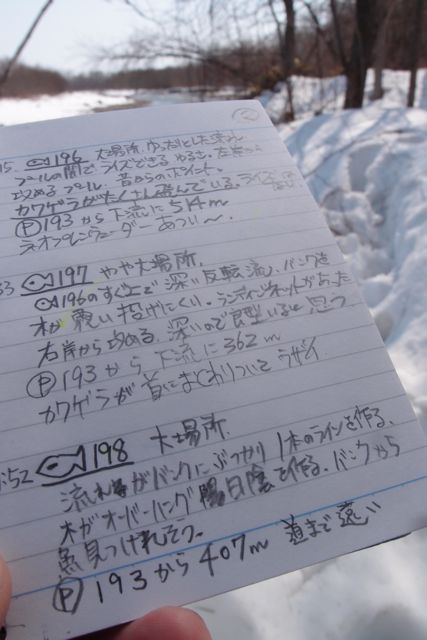 ②
15. 196 大場所. ゆったりとした流れ
プールの開で ライズできる ゆるさ. 左岸から
攻めるプール. 昔からのポイント.
カワゲラがたくさん遊んでいる. ライズ
Ⓟ193から下流に514m
ネオプレンウェーダーあつい〜.
33 197 やや大場所.
196のすぐ上で 深い反転流. バンクを
木が覆い投げにくい. ランディングネットがあった
右岸から攻める. 深いので良型いると思う
Ⓟ193から下流に362m
カワゲラが首にまとわりついてうザイ
:52 198 大場所.
流れがバンクにぶつかり 1本のラインを作る.
木がオーバーハング 日陰を作る. バンクから
魚見つけれそう.
Ⓟ193から407m 道まで遠い